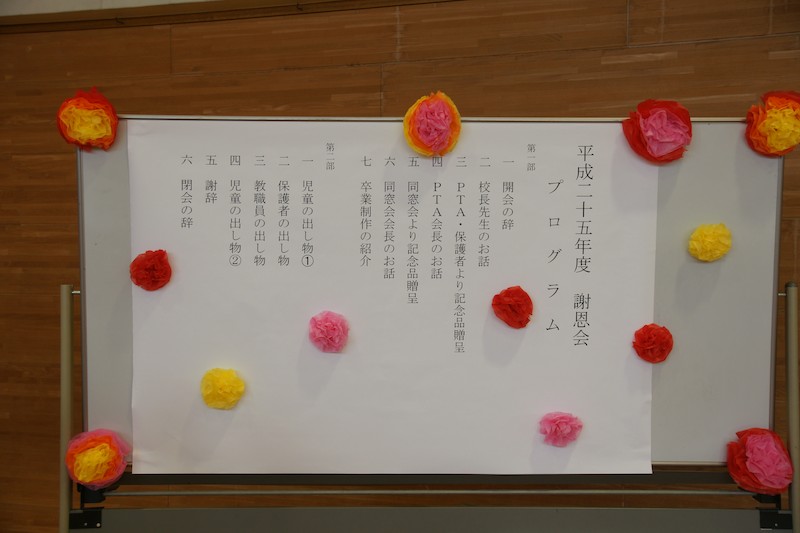 平成二十五年度　謝恩会
プログラム
第一部
一　開会の辞
二　校長先生のお話
三　ＰＴＡ・保護者より記念品贈呈
四　ＰＴＡ会長のお話
五　同窓会より記念品贈呈
六　同窓会会長のお話
七　卒業制作の紹介
第二部
一　児童の出し物①
二　保護者の出し物
三　教職員の出し物
四　児童の出し物②
五　謝辞
六　閉会の辞